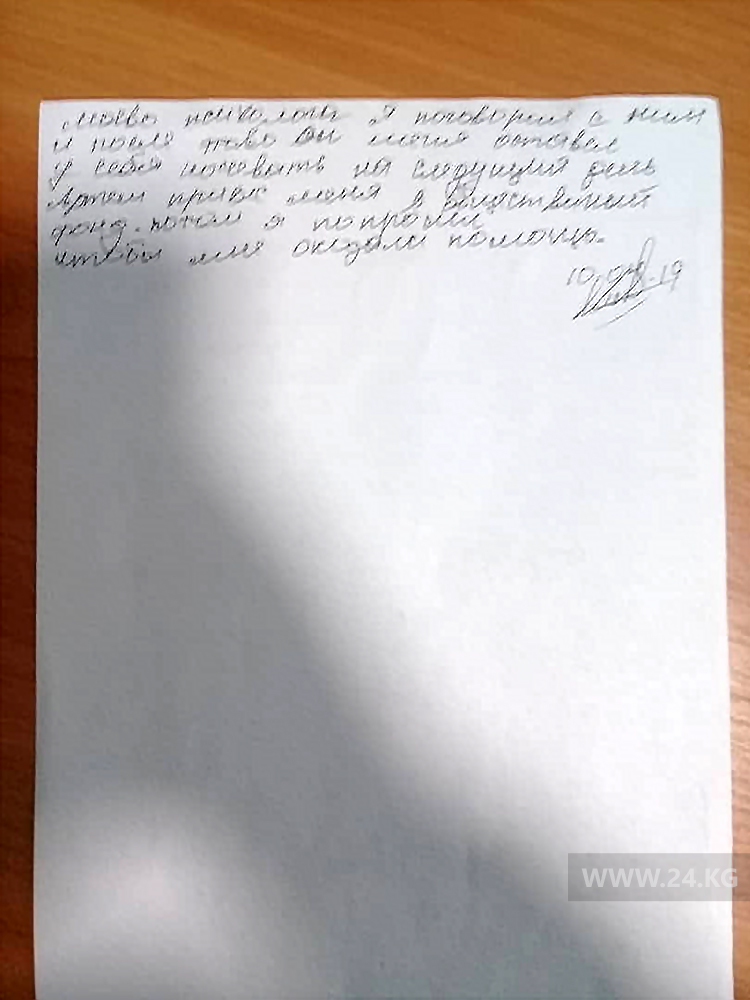 моево психолога я поговорил с ним
и после таво он меня оставел
у себя начевать на следущий день
Артем привёс меня в общественний
фонд. потом я попросил
чтобы мне окозали помощь.
WWW.24.KG